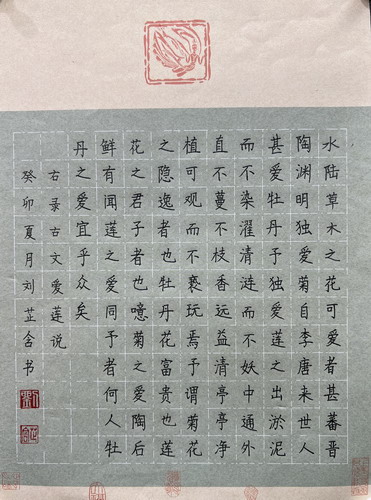 水陆草木之花可爱者甚蕃晋
陶渊明独爱菊自李唐来世人
甚爱牡丹予独爱莲之出淤泥
而不染濯清涟而不妖中通外
直不蔓不枝香远益清亭亭净
植可观而不亵玩焉予谓菊花
之隐逸者也牡丹花富贵也莲
花之君子者也噫菊之爱陶后
鲜有闻莲之爱同予者何人牡
丹之爱宜乎众矣
右录古文爱莲说
癸卯夏月刘芷含书